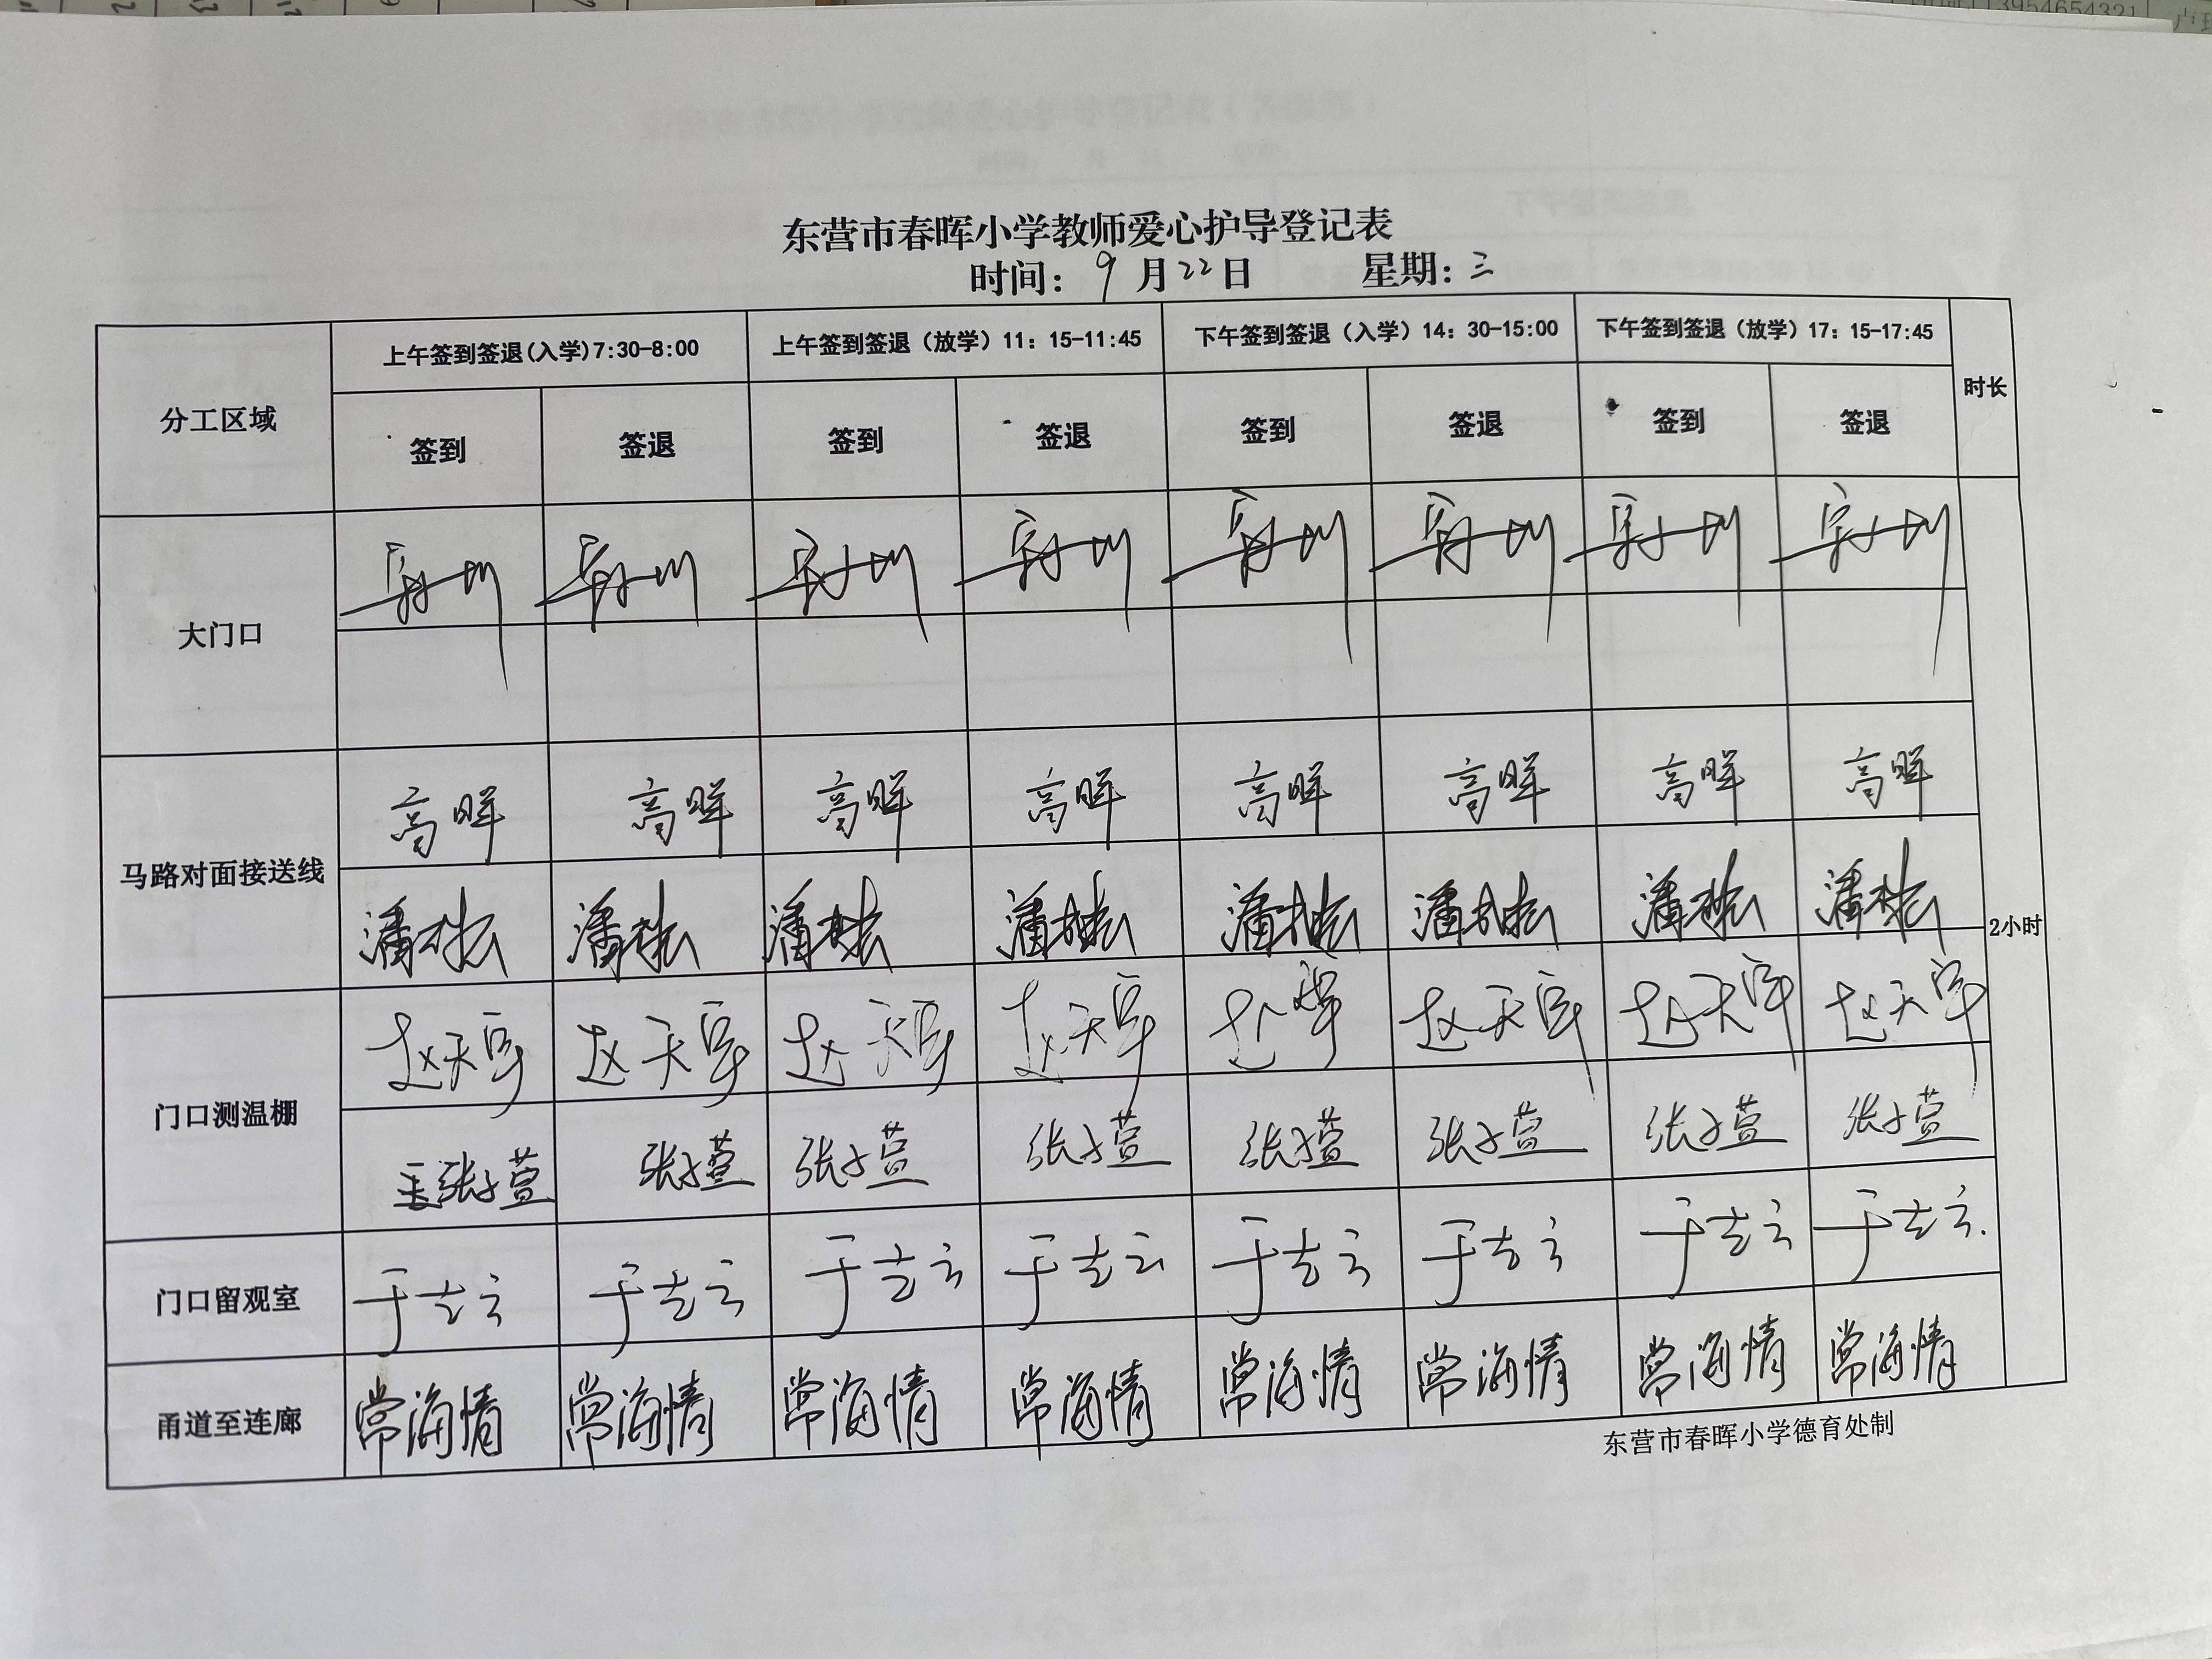 13954654321
东营市春晖小学教师爱心护导登记表
时间：9月22日 星期：三
分工区域 上午签到签退(入学)7:30-8:00 上午签到签退（放学）11：15-11:45 下午签到签退（入学）14：30-15:00 下午签到签退（放学）17：15-17:45 时长
签到 签退 签到 签退 签到 签退 签到 签退
大门口
马路对面接送线 高晖 高晖 高晖 高晖 高晖 高晖 高晖 高晖
潘 潘 潘 潘 潘 潘 潘 潘
2小时
门口测温棚 赵天宇 赵天宇 赵天宇 赵天宇 赵天宇 赵天宇 赵天宇 赵天宇
张子萱 张子萱 张子萱 张子萱 张子萱 张子萱 张子萱 张子萱
门口留观室 于志云 于志云 于志云 于志云 于志云 于志云 于志云 于志云
甬道至连廊 常海情 常海情 常海情 常海情 常海情 常海情 常海情 常海情
东营市春晖小学德育处制